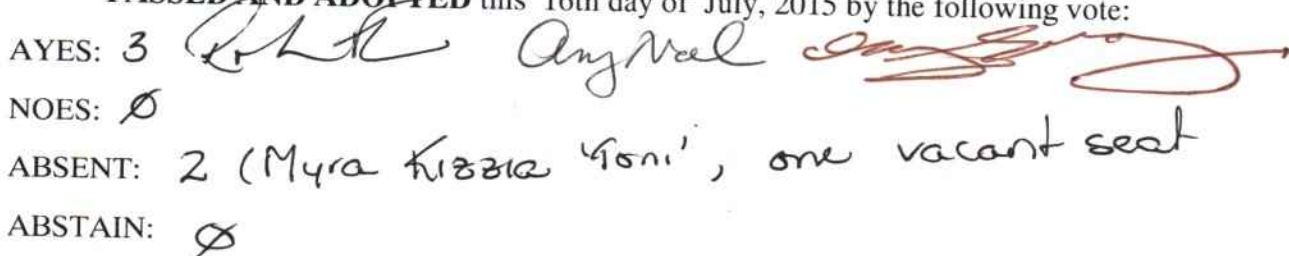 PASSED AND ADOPTED this 16th day of July, 2015 by the following vote:
AYES: 3
NOES: Ø
ABSENT: 2 (Myra Kizzia 'Toni', one vacant seat
ABSTAIN: Ø